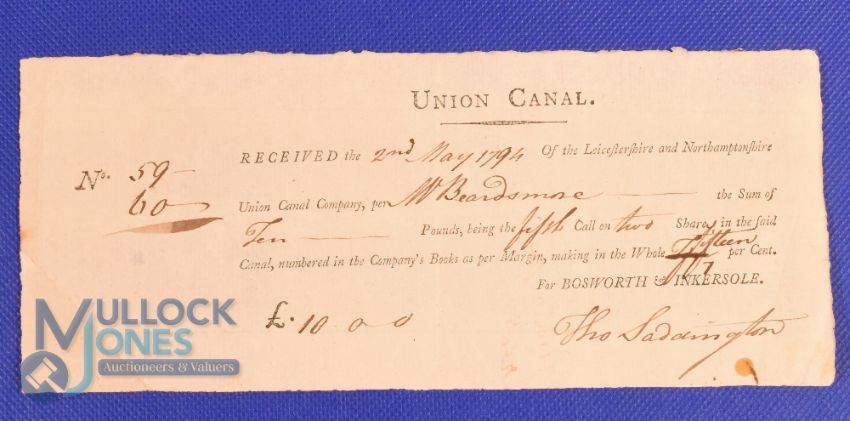 UNION CANAL.
No. 59
60
RECEIVED the 2nd May 1794 Of the Leicestershire and Northamptonshire
Union Canal Company, per Mr Beardsmore the Sum of
Ten Pounds, being the fifth Call on two Share, in the said
Canal, numbered in the Company's Books as per Margin, making in the Whole Fifteen per Cent.
For BOSWORTH & INKERSOLE.
£. 10 0 0
Tho Saddington
MULLOCK
JONES
Auctioneers & Valuers